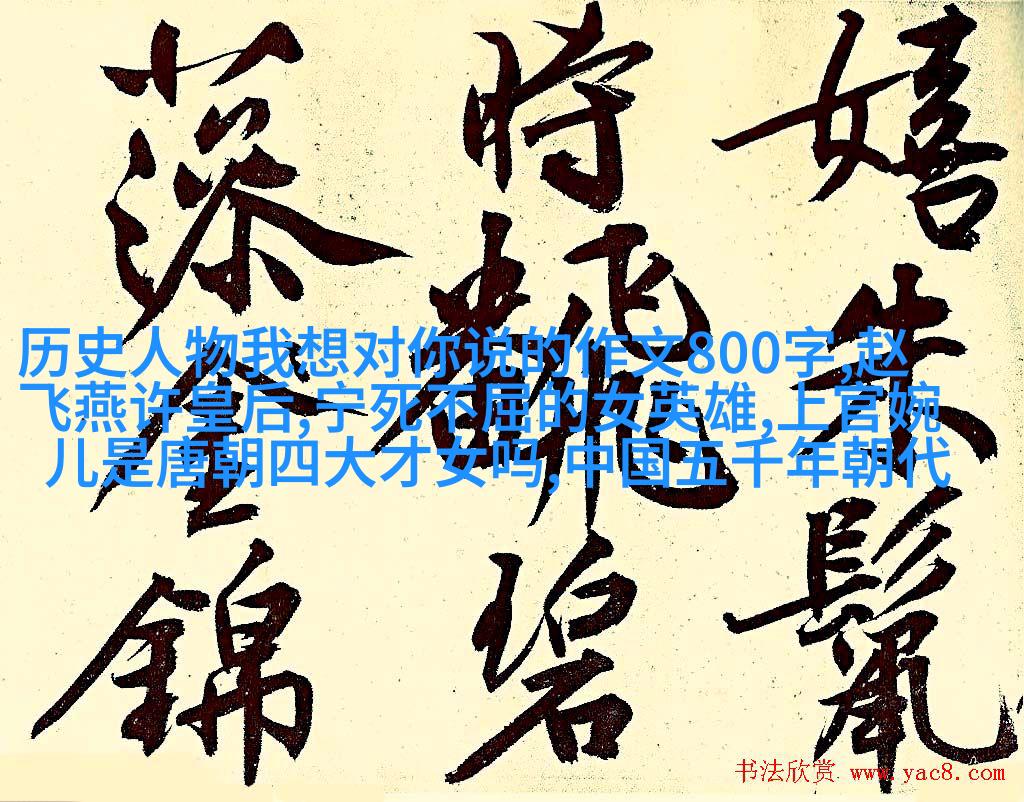 嬉朱鬣
時飜碧
藻全錦
历史人物我想对你说的作文800字,赵
飞燕许皇后,宁死不屈的女英雄,上官婉
儿是唐朝四大才女吗,中国五千年朝代
书法欣赏 www.yac8.com